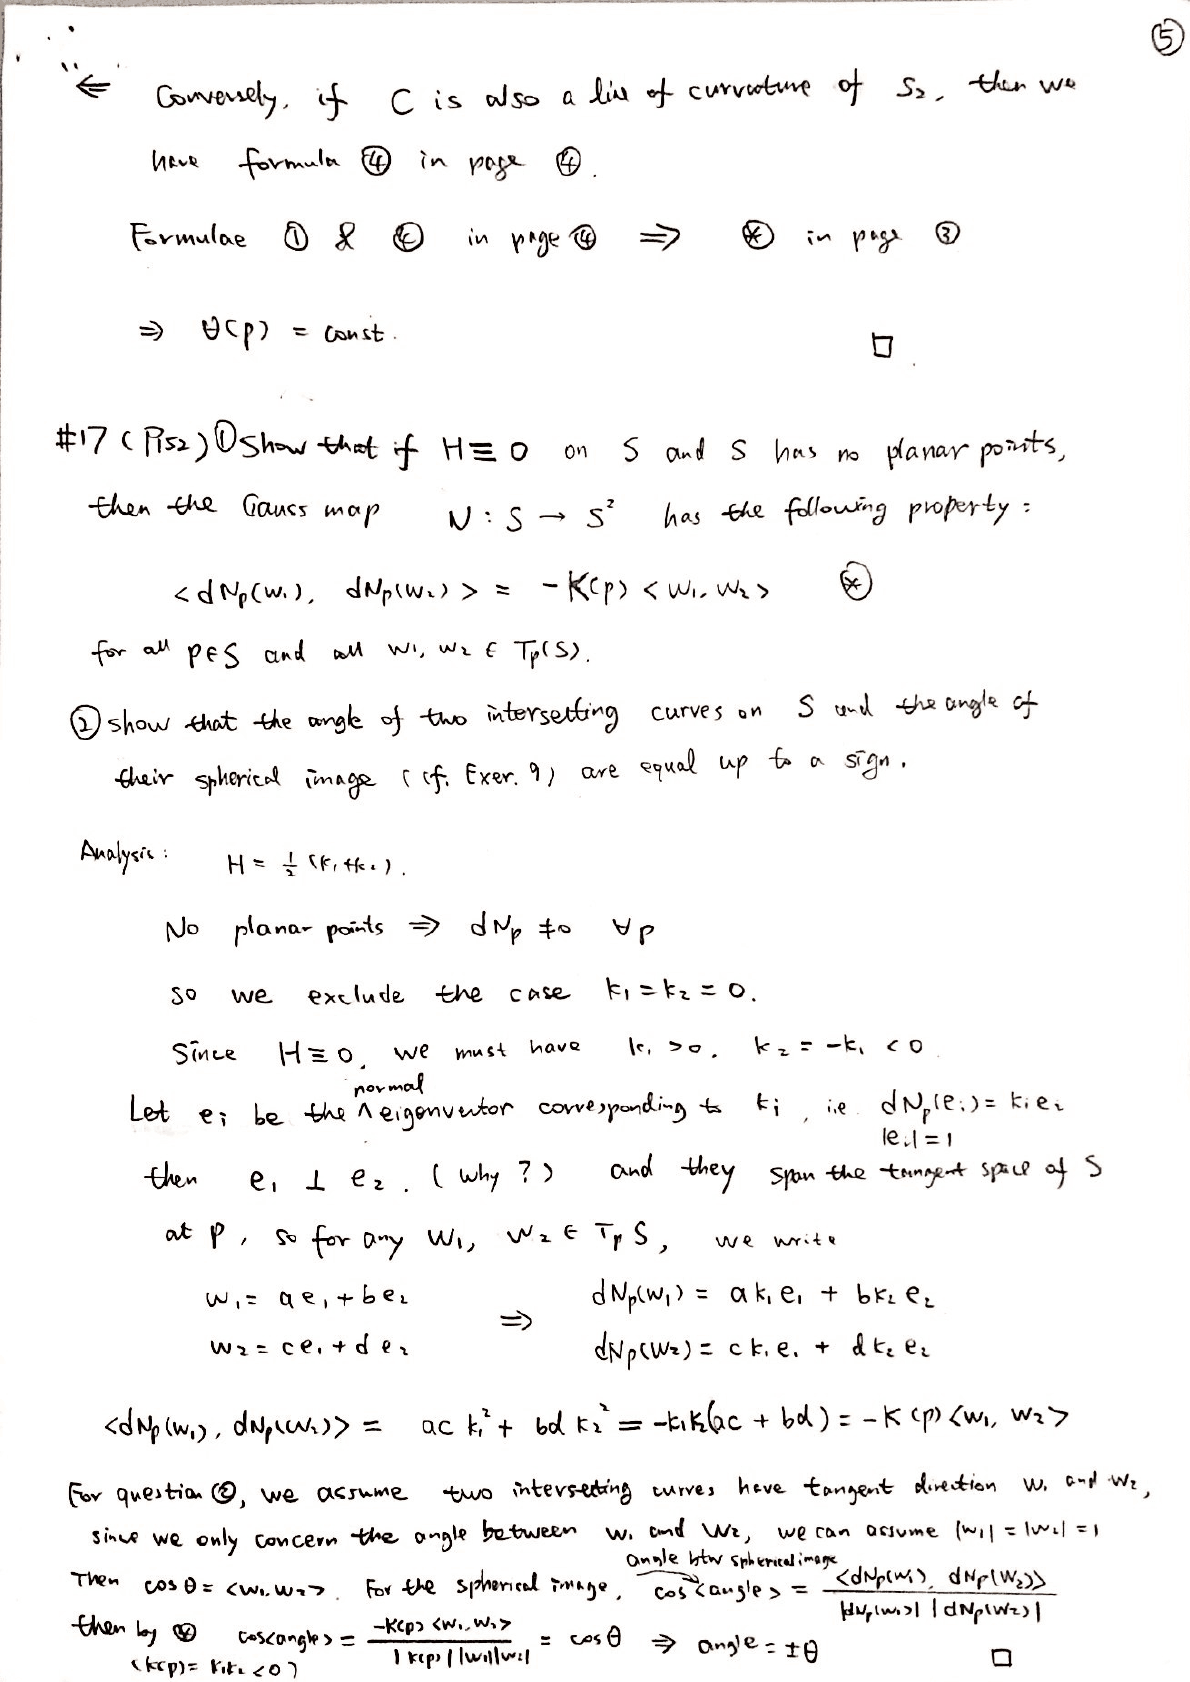 ⑤
"⇐" Conversely, if C is also a line of curvature of S₂, then we
have formula ④ in page ④.
Formulae ① & ④ in page ④ ⇒ ⊛ in page ③
⇒ θ(p) = const. □
#17 (P152) ① Show that if H≡0 on S and S has no planar points,
then the Gauss map N: S → S² has the following property:
<dNp(w₁), dNp(w₂)> = -K(p) <w₁, w₂> ⊛
for all p∈S and all w₁, w₂ ∈ Tp(S).
② show that the angle of two intersetting curves on S and the angle of
their spherical image (cf. Exer. 9) are equal up to a sign.
Analysis: H = ½ (k₁+k₂).
No planar points ⇒ dNp ≠0 ∀p
so we exclude the case k₁=k₂=0.
Since H≡0, we must have k₁>0, k₂=-k₁<0
normal
Let eᵢ be the ∧ eigenvector corresponding to kᵢ, i.e. dNp(eᵢ)= kᵢeᵢ
|eᵢ|=1
then e₁ ⊥ e₂. (why?) and they span the tangent space of S
at p, so for any w₁, w₂ ∈ TpS, we write
w₁= ae₁+be₂ ⇒ dNp(w₁) = ak₁e₁ + bk₂e₂
w₂=ce₁+de₂ dNp(w₂)= ck₁e₁ + dk₂e₂
<dNp(w₁), dNp(w₂)> = ac k₁² + bd k₂² = -k₁k₂(ac + bd) = -K(p)<w₁, w₂>
For question ②, we assume two intersecting curves have tangent direction w₁ and w₂,
since we only concern the angle between w₁ and w₂, we can assume |w₁|=|w₂|=1
angle btw spherical image
Then cosθ = <w₁,w₂>. For the spherical image, cos<angle> = <dNp(w₁), dNp(w₂)> / |dNp(w₁)| |dNp(w₂)|
then by ⊛ cos<angle> = -K(p)<w₁,w₂> / |K(p)||w₁||w₂| = cosθ ⇒ angle = ±θ □
(K(p)= k₁k₂<0)